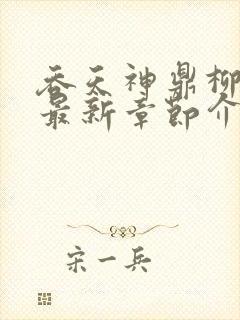 吞天神鼎柳
最新章节介
宋一兵